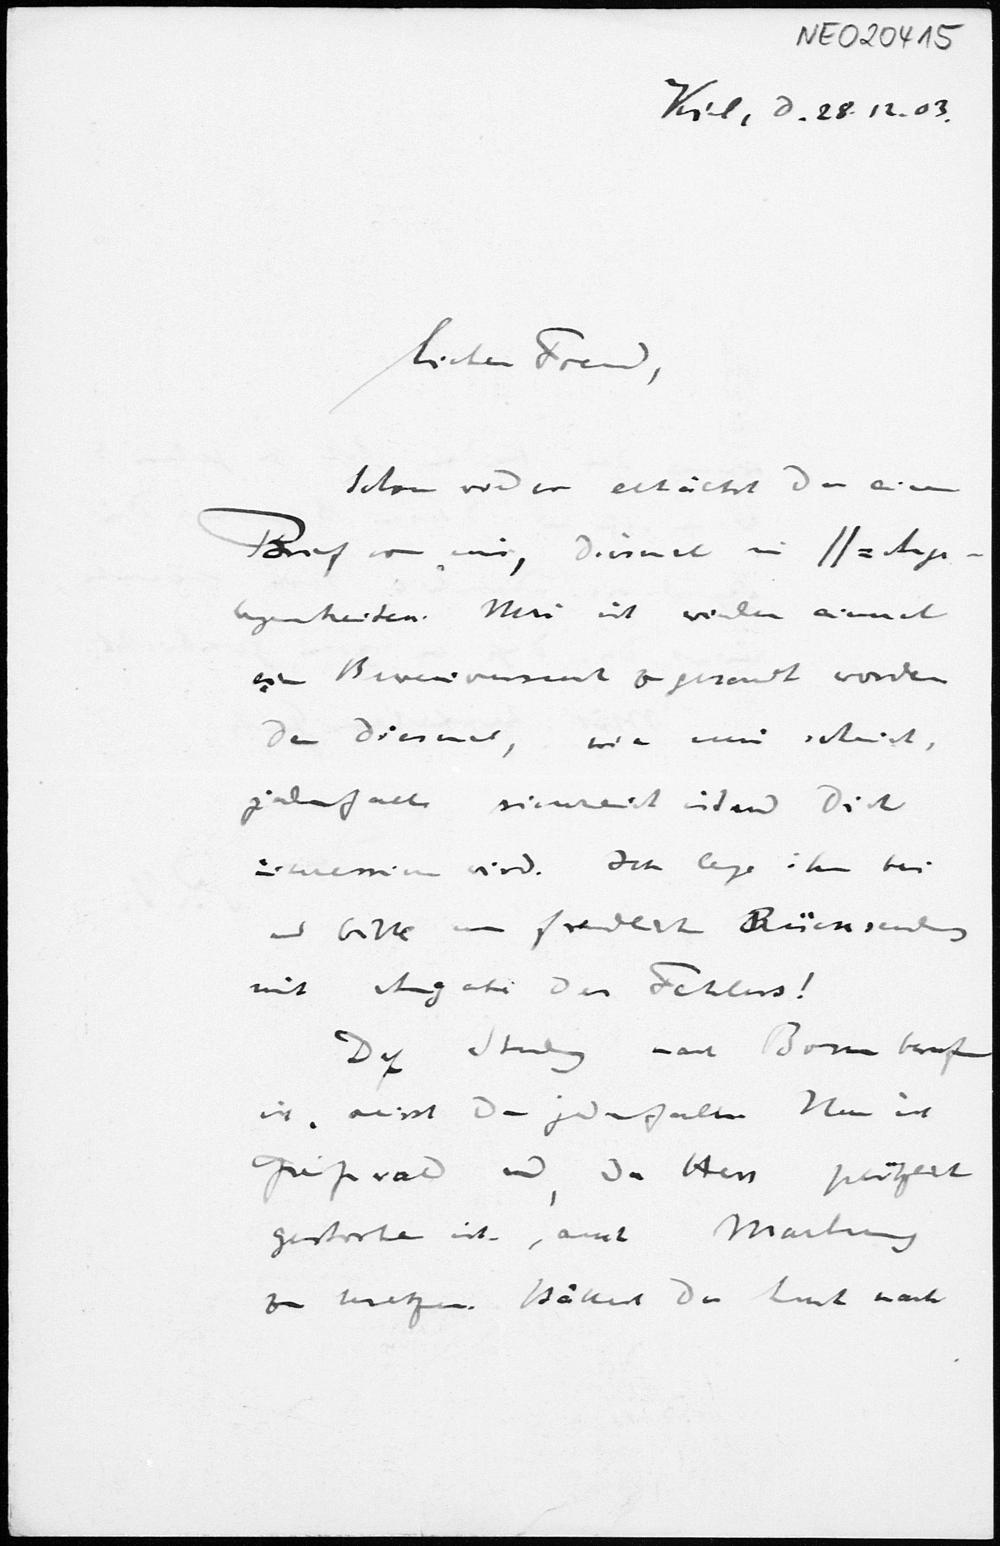 NE020415
Kiel, d. 28.12.03.
Lieber Freund,
Schon wieder erhältst Du einen
Brief von mir, diesmal in //=Ange-
legenheiten. Mir ist wieder einmal
ein Beweisversuch zugesandt worden
der diesmal, wie mir scheint,
jedenfalls sinnreich ist und Dich
interessieren wird. Ich lege ihn bei
und bitte um freundliche Rücksendung
mit Angabe des Fehlers!
Daß Study nach Bonn berufen
ist, weisst Du jedenfalls. Nun ist
Greifswald und, da Hess plötzlich
gestorben ist, auch Marburg
zu besetzen. Hättest Du Lust nach